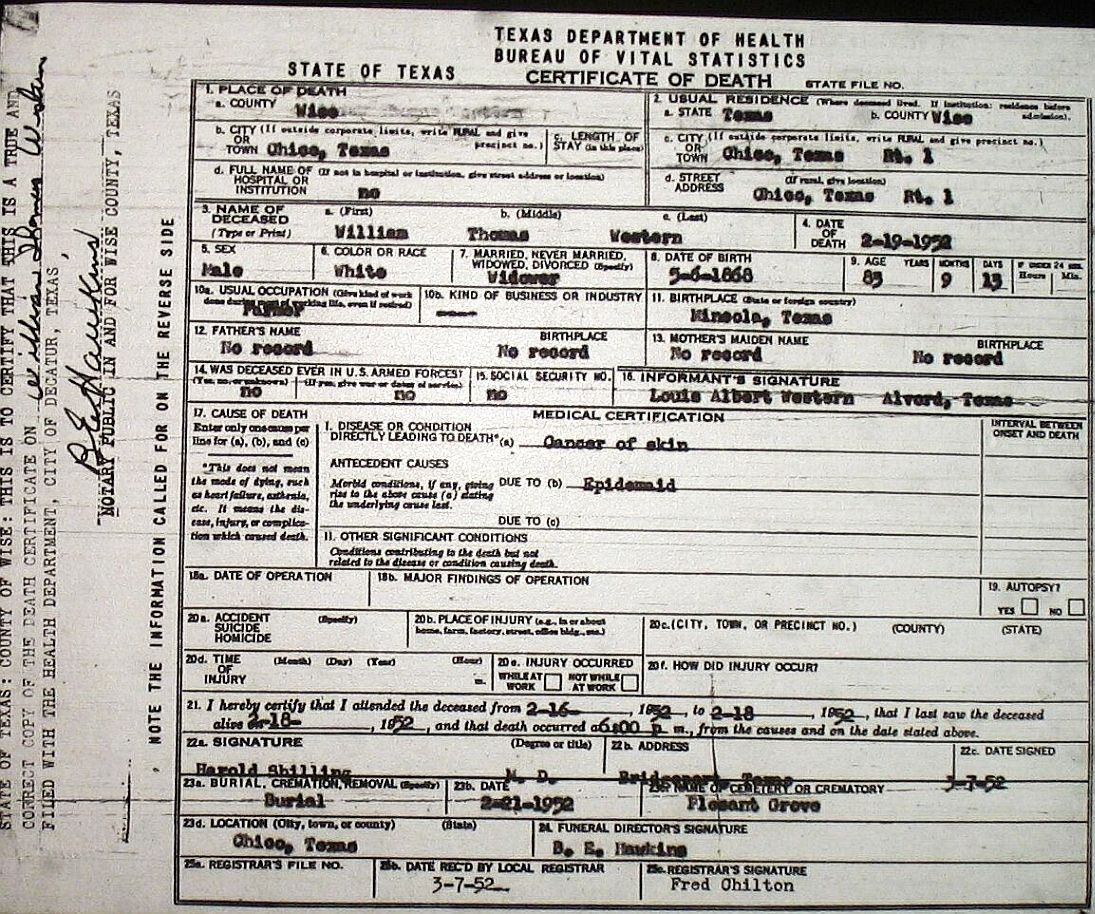 TEXAS DEPARTMENT OF HEALTH
BUREAU OF VITAL STATISTICS
STATE OF TEXAS
CERTIFICATE OF DEATH
STATE FILE NO.
1. PLACE OF DEATH
a. COUNTY Wise
2. USUAL RESIDENCE (Where deceased lived. If institution: residence before admission).
a. STATE Texas b. COUNTY Wise
b. CITY (If outside corporate limits, write RURAL and give precinct no.)
OR
TOWN Chico, Texas
c. LENGTH OF
STAY (in this place)
c. CITY (If outside corporate limits, write RURAL and give precinct no.)
OR
TOWN Chico, Texas Rt. 1
d. FULL NAME OF (If not in hospital or institution, give street address or location)
HOSPITAL OR
INSTITUTION no
d. STREET (If rural, give location)
ADDRESS Chico, Texas Rt. 1
3. NAME OF DECEASED a. (First) b. (Middle) c. (Last)
(Type or Print) William Thomas Western
4. DATE
OF
DEATH 2-19-1952
5. SEX
Male
6. COLOR OR RACE
White
7. MARRIED, NEVER MARRIED,
WIDOWED, DIVORCED (Specify)
Widower
8. DATE OF BIRTH
5-6-1868
9. AGE YEARS MONTHS DAYS IF UNDER 24 HRS.
83 9 13 Hours Min.
10a. USUAL OCCUPATION (Give kind of work
done during most of working life, even if retired)
Farmer
10b. KIND OF BUSINESS OR INDUSTRY
11. BIRTHPLACE (State or foreign country)
Mineola, Texas
12. FATHER'S NAME BIRTHPLACE
No record No record
13. MOTHER'S MAIDEN NAME BIRTHPLACE
No record No record
14. WAS DECEASED EVER IN U.S. ARMED FORCES?
(Yes, no, or unknown) (If yes, give war or dates of service)
no no
15. SOCIAL SECURITY NO.
no
16. INFORMANT'S SIGNATURE
Louis Albert Western Alvord, Texas
17. CAUSE OF DEATH
Enter only one cause per
line for (a), (b), and (c)
*This does not mean
the mode of dying, such
as heart failure, asthenia,
etc. It means the dis-
ease, injury, or complica-
tion which caused death.
MEDICAL CERTIFICATION
INTERVAL BETWEEN
ONSET AND DEATH
I. DISEASE OR CONDITION
DIRECTLY LEADING TO DEATH* (a) Cancer of skin
ANTECEDENT CAUSES
Morbid conditions, if any, giving
rise to the above cause (a) stating
the underlying cause last.
DUE TO (b) Epidemaid
DUE TO (c)
II. OTHER SIGNIFICANT CONDITIONS
Conditions contributing to the death but not
related to the disease or condition causing death.
18a. DATE OF OPERATION
18b. MAJOR FINDINGS OF OPERATION
19. AUTOPSY?
YES NO
20a. ACCIDENT (Specify)
SUICIDE
HOMICIDE
20b. PLACE OF INJURY (e.g., in or about
home, farm, factory, street, office bldg., etc.)
20c. (CITY, TOWN, OR PRECINCT NO.) (COUNTY) (STATE)
20d. TIME (Month) (Day) (Year) (Hour)
OF
INJURY m.
20e. INJURY OCCURRED
WHILE AT WORK NOT WHILE AT WORK
20f. HOW DID INJURY OCCUR?
21. I hereby certify that I attended the deceased from 2-16- , 1952, to 2-18 , 1952, that I last saw the deceased
alive 2-18- , 1952, and that death occurred a 6:00 p m., from the causes and on the date stated above.
22a. SIGNATURE (Degree or title)
Harold Shilling M. D.
22b. ADDRESS
Bridgeport, Texas
22c. DATE SIGNED
3-7-52
23a. BURIAL, CREMATION, REMOVAL (Specify)
Burial
23b. DATE
2-21-1952
23c. NAME OF CEMETERY OR CREMATORY
Plesant Grove
23d. LOCATION (City, town, or county) (State)
Chico, Texas
24. FUNERAL DIRECTOR'S SIGNATURE
B. E. Hawkins
25a. REGISTRAR'S FILE NO.
25b. DATE REC'D BY LOCAL REGISTRAR
3-7-52
25c. REGISTRAR'S SIGNATURE
Fred Chilton
NOTE THE INFORMATION CALLED FOR ON THE REVERSE SIDE
STATE OF TEXAS: COUNTY OF WISE: THIS IS TO CERTIFY THAT THIS IS A TRUE AND
CORRECT COPY OF THE DEATH CERTIFICATE ON William Thomas Western
FILED WITH THE HEALTH DEPARTMENT, CITY OF DECATUR, TEXAS
B E Hawkins
NOTARY PUBLIC IN AND FOR WISE COUNTY, TEXAS